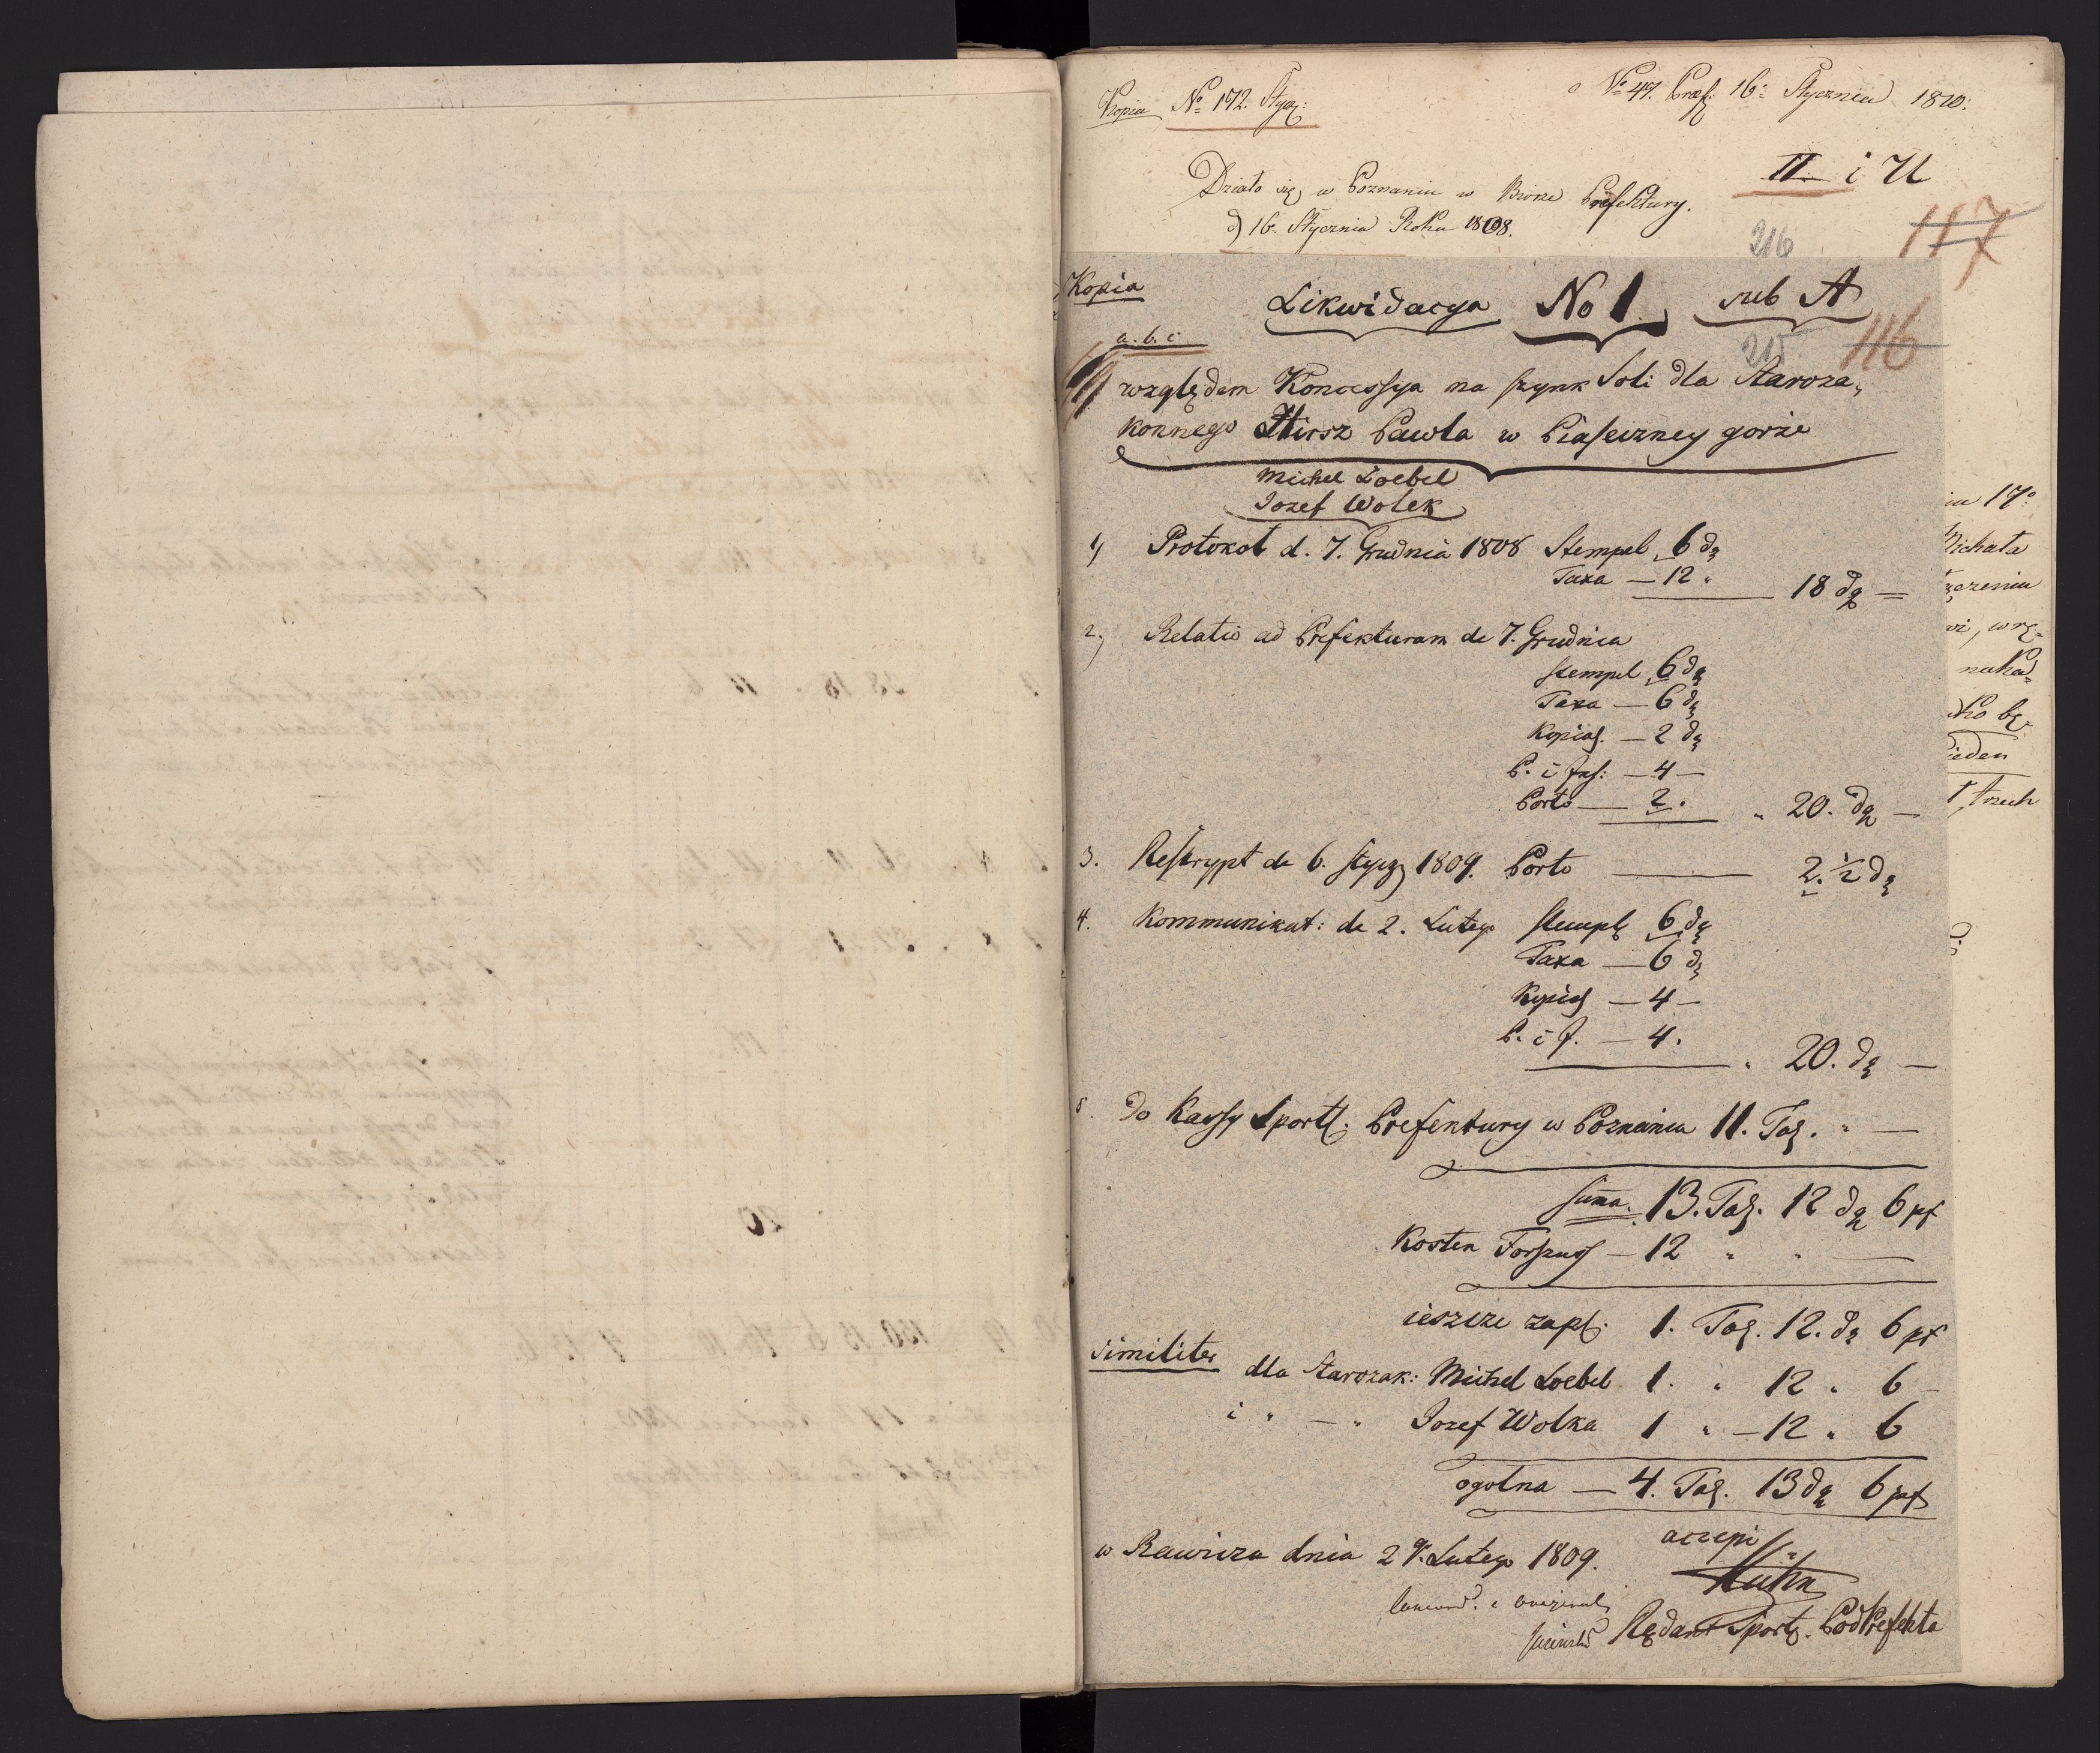 Kopia No 172. Stycz:
No 47. Pref: 16: Stycznia 1810:
II. i U
Działo się w Poznaniu w Biorze Prefektury.
d) 16 Stycznia Roku 1808.
216
117
Kopia
Likwidacya No 1. sub A
a. b. c
215 116
względem Koncessya na szynk Soli dla Staroza,
konnego Hirsz Pawla w Piaseczney gorże
Michel Loebel
Jozef Wolek
1) Protokoł d. 7. Grudnia 1808 Stempel 6 dg
Taxa — 12 "
18 dg —
2) Relatio ad Prefekturam de 7. Grudnia
Stempel 6 dg
Taxa — 6 dg
Kopial. — 2 dg
P. i Ins: — 4 —
Porto — 2.
" 20. dg —
3. Reskrypt de 6. Stycz 1809. Porto — 2. ½ dg
4. Kommunikat: de 2. Lutego Stempl 6 dg
Taxa — 6 dg
Kopial — 4 —
P. i J. — 4.
" 20. dg —
5. do Kassy Sportl. Prefektury w Poznaniu 11. Tal. " —
Suma. 13. Tal. 12 dg 6 pf
Kosten Forszus — 12 " " —
ieszcze zapł. 1. Tal. 12. dg 6 pf
Similiter dla Starozak: Michel Loebel 1. " 12 " 6 —
i " — " Jozef Wolka 1 " — 12 " 6
ogolna — 4. Tal. 13 dg 6 pf
w Rawiczu dnia 27. Lutego 1809.
accepi
Kuhn
Rędant Sportl. PodPrefekta
iu 17:
Michała
czeniu
wi, wrę-
nakad
ko bę-
ieden
trzech